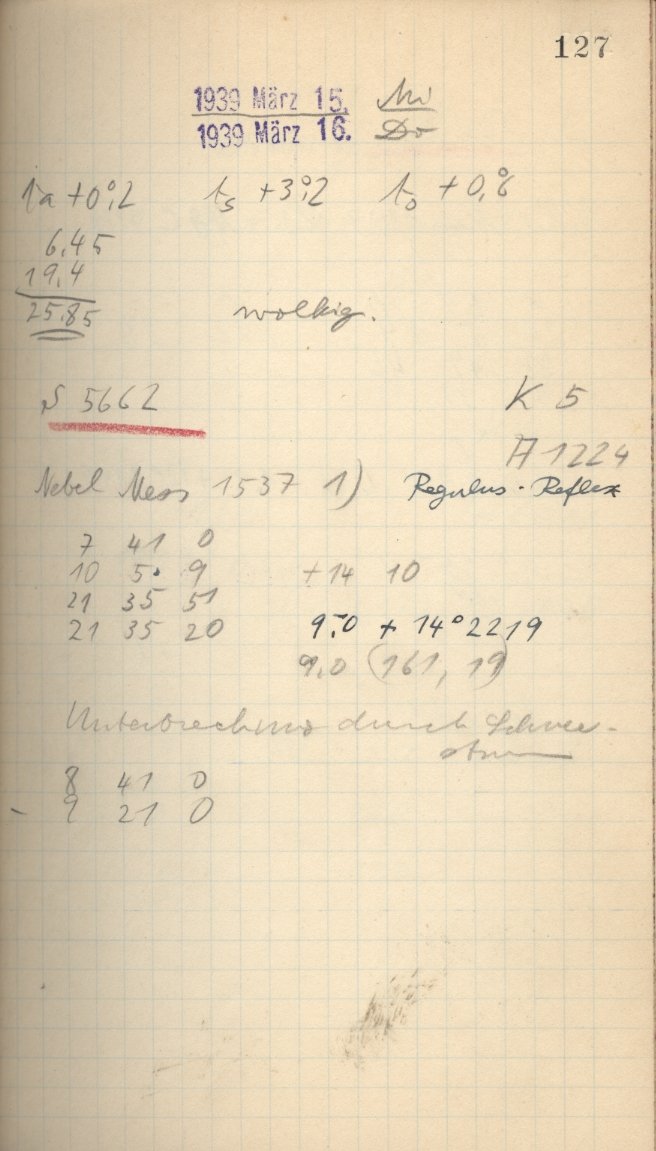 127
1939 März 15. Mi
1939 März 16. Do
ta +0°,2 ts +3°,2 to +0,°6
6,45
19,4
25,85 wolkig.
S 5662 K 5
A 1224
Nebel Mess 1537 1) Regulus-Reflex
7 41 0
10 5. 9 +14 10
21 35 51
21 35 20 9,0 + 14° 22 19
9,0 (161, 19)
Unterbrechung durch Schnee-
sturm
8 41 0
- 9 21 0